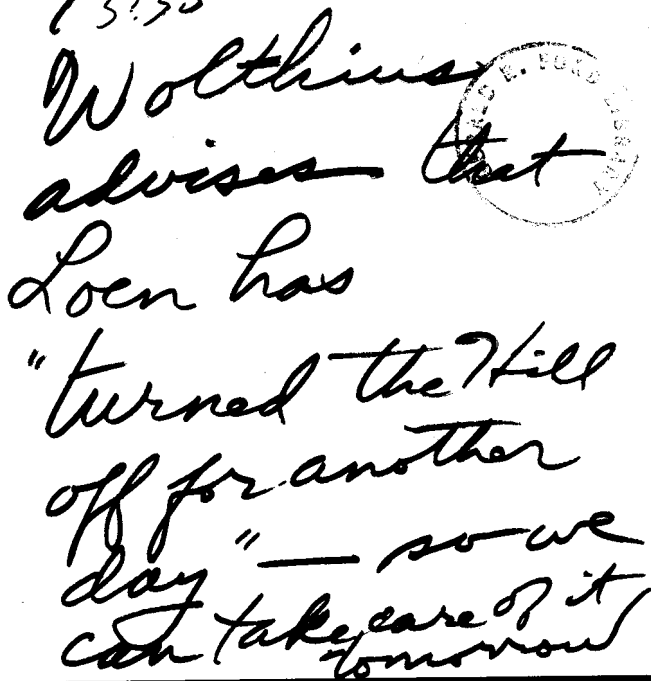 Wolthius
advises that
Loen has
"turned the Hill
off for another
day" — so we
can take care of it
tomorrow
R. FORD LIBRARY